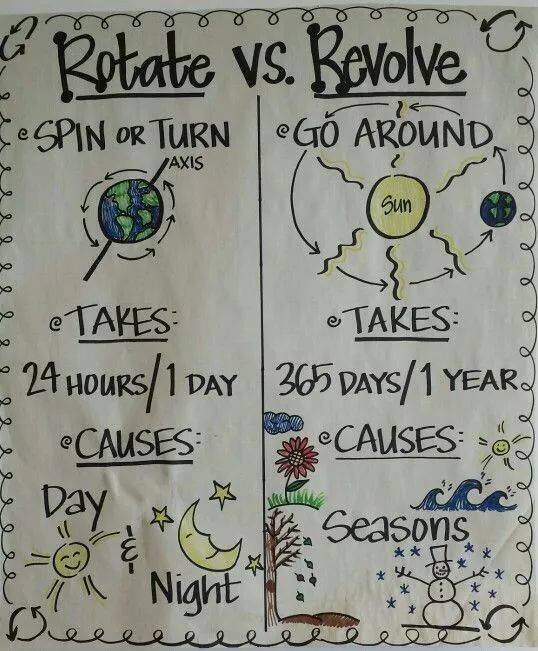 Rotate vs. Revolve
SPIN OR TURN
AXIS
TAKES:
24 HOURS/1 DAY
CAUSES:
Day
&
Night
GO AROUND
Sun
TAKES:
365 DAYS/1 YEAR
CAUSES:
Seasons